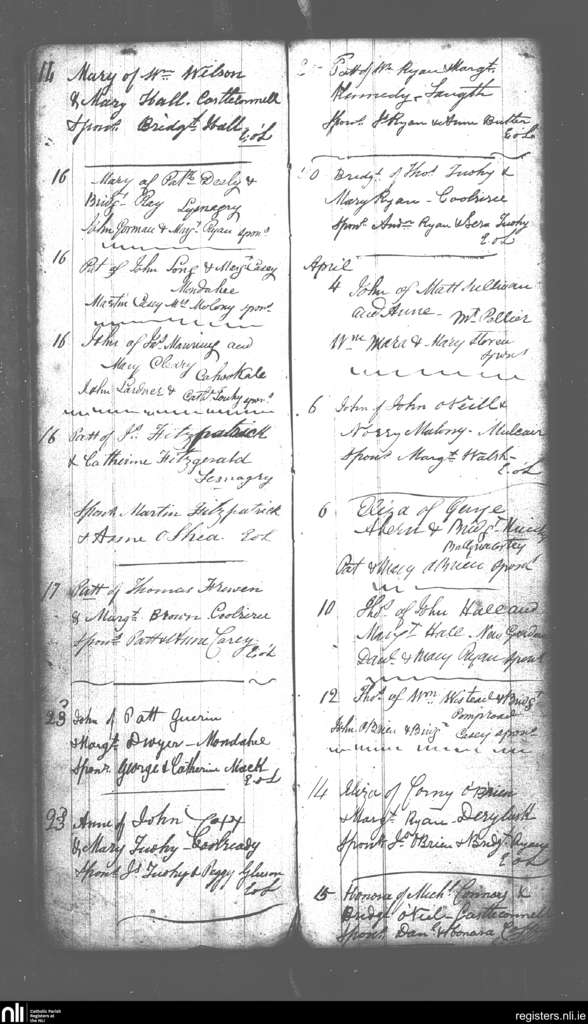 14 Mary of Wm Wilson
& Mary Hall. Castleconnell
Spons. Bridgt. Hall
E.oL
16 Mary of Patk Deely &
Bridgt. Ray
John Gorman & Margt. Ryan spons
16 Pat of John Long & Margt Casey
Mondahee
Martin Casey Mrs Molony spons
16 John of Jas. Manning and
Mary Cleary
John Lardner & Cathe. Touhy spons
16 Patt of Js. Fitzpatrick
& Catherine Fitzgerald
Spons Martin Fitzpatrick
& Anne O Shea. EoL
17 Patt of Thomas Frewen
& Margt. Brown. Coolriree
Spons Patt & Anne Carey
E.oL
23 John of Patt Guerin
& Margt. Dwyer - Mondahee
Spons. George & Catherine Mack
E.oL
23 Anne of John
& Mary Tuohy - Coolready
Spons Js Tuohy & Peggy Gleeson
EoL
Patt of Wm Ryan & Margt.
Kennedy
Spons. Js Ryan & Anne Butler
EoL
Bridgt. of Thos. Tuohy &
Mary Ryan - Coolriree
Spons. Andw Ryan & Tuohy
E.oL
April
4 John of Matt Sullivan
and Anne - Mt. Pellier
Wm Mara & Mary
Spons
6 John of John O'Neill &
Norry Malony - Mulcair
Spons Margt. Walsh -
E.oL
6 Eliza of
Ahern & Bridgt.
Pat & Mary OBrien Spons
10 Thos. of John Hall and
Margt Hall New Garden
Danl. & Mary Ryan Spons
12 Thos. of Wm & Bridgt
John OBrien & Bridgt Casey spons
14 Eliza of Corny O'Brien
& Margt. Ryan - Derylusk
Spons Js. OBrien & Bridgt. Ryan
E.oL
15 Honora of Michl. Connors &
Bridgt O'Neil - Castleconnell
Spons. Dan & Honora
nli
Catholic Parish
Registers at
the NLI
registers.nli.ie